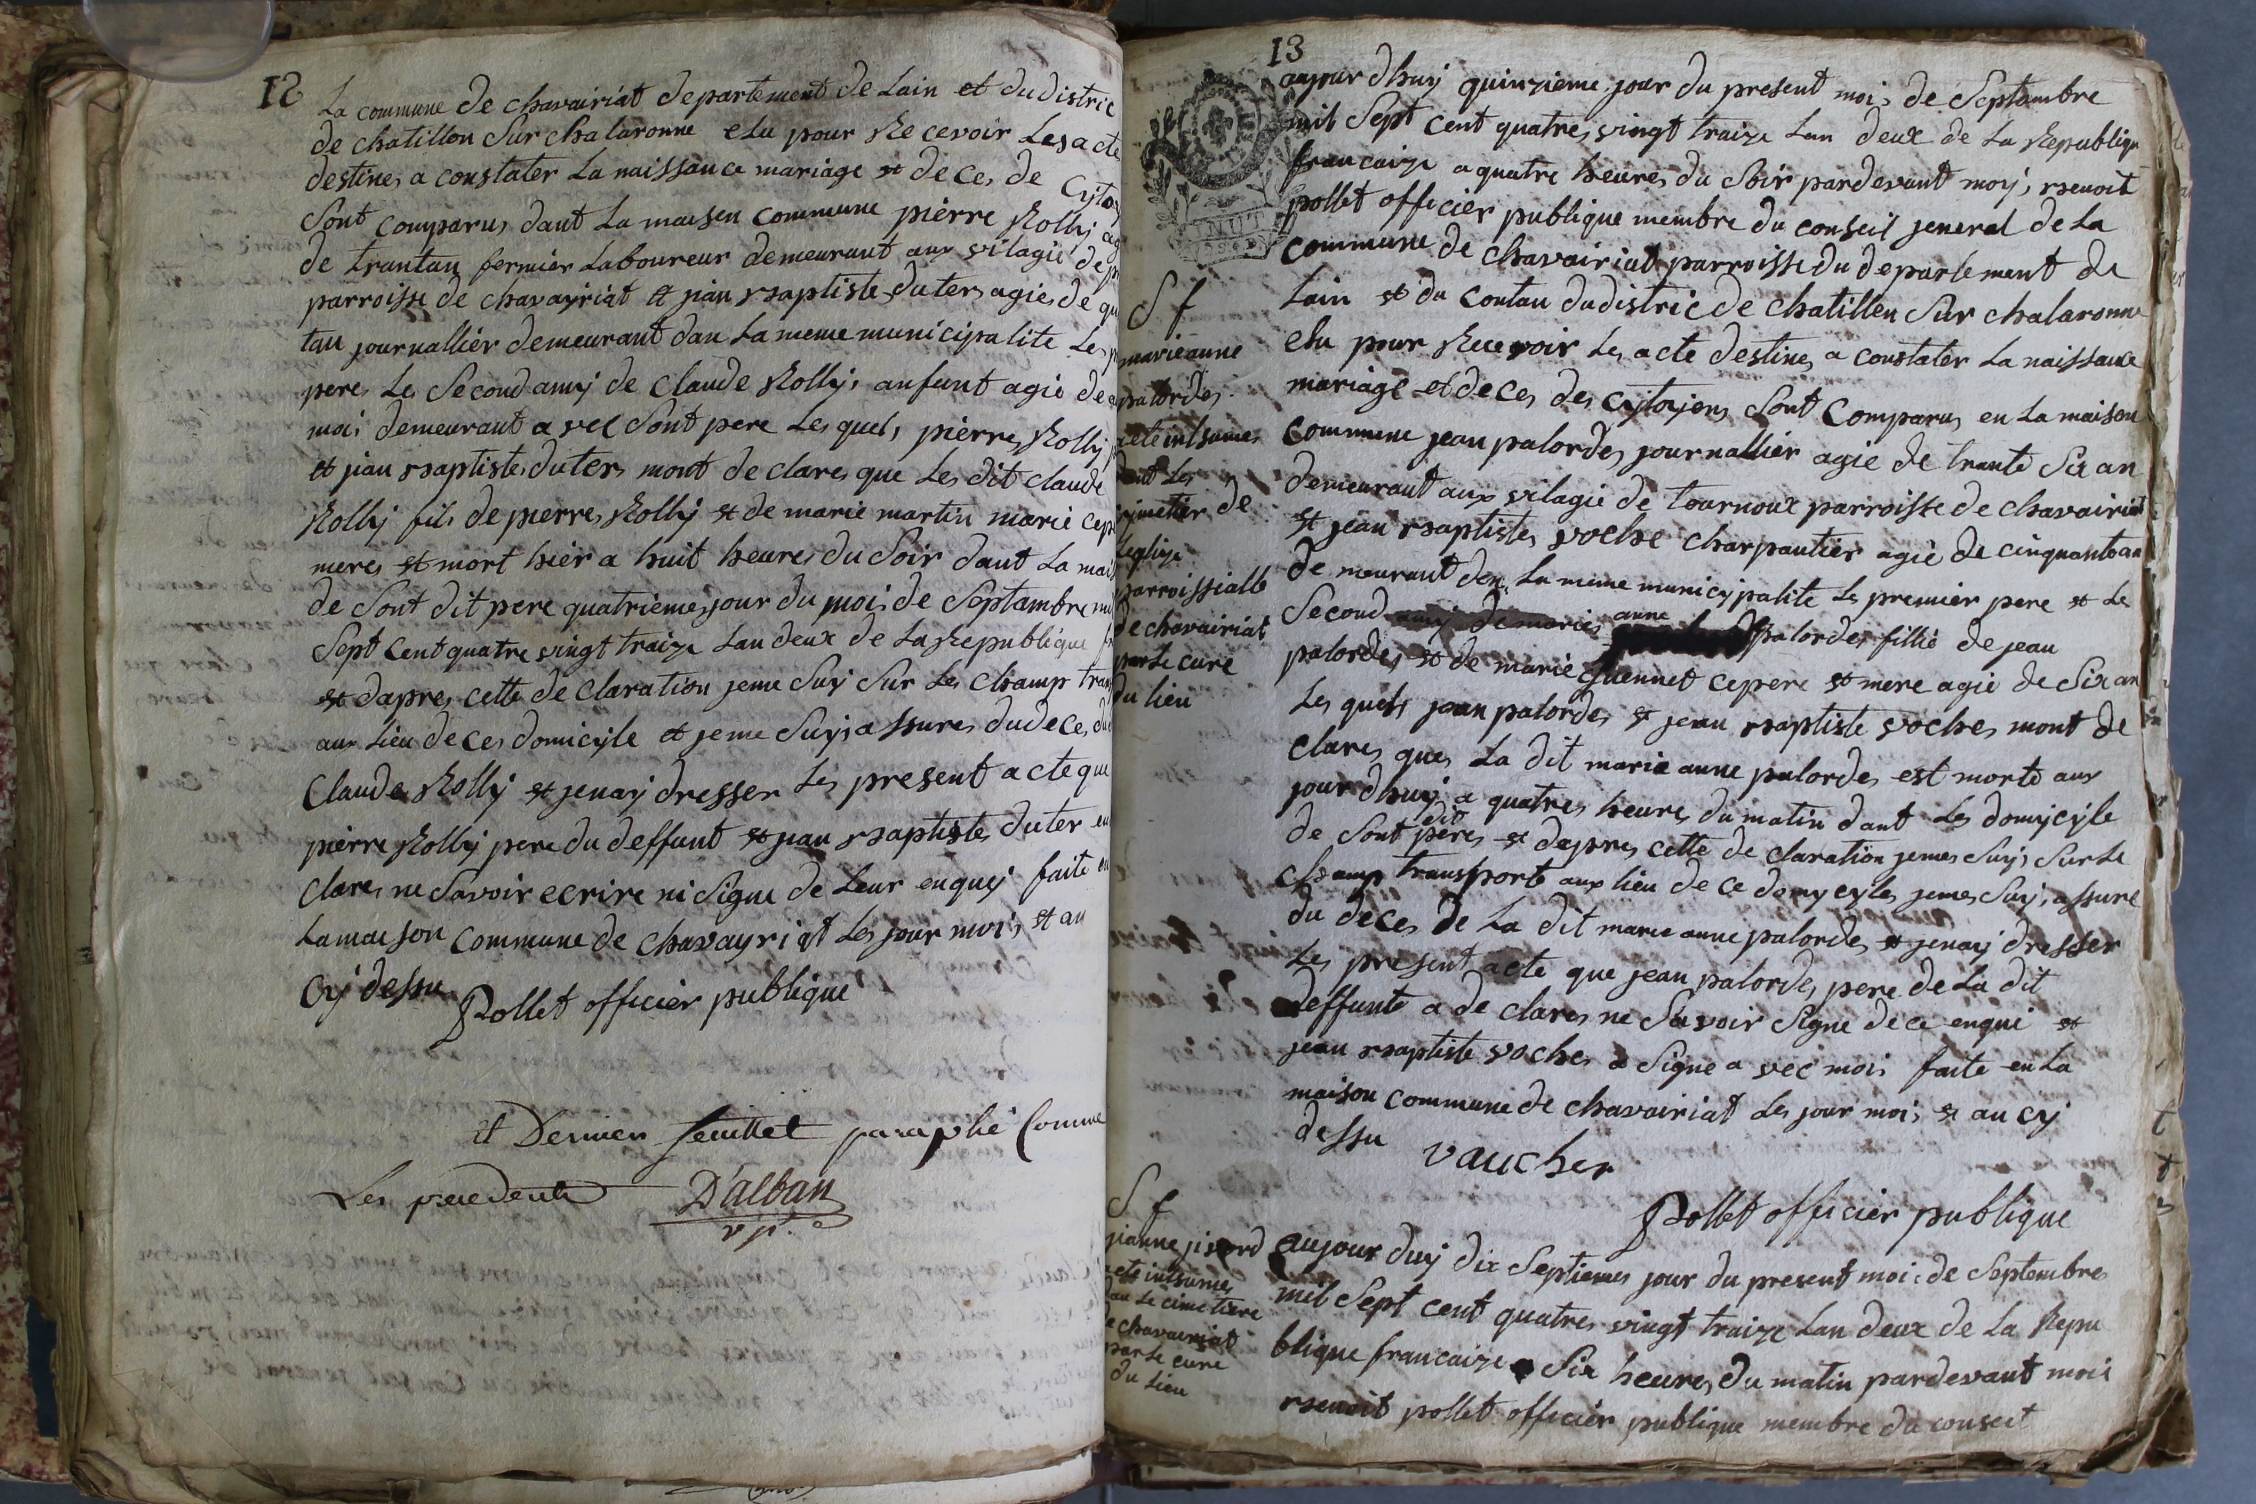 12
La commune de chavairiat departement de Lain et du distric
de chatillon Sur chalaronne elu pour Recevoir Les acte
destines a constater La naissance mariage et deces de Cytoy
Sont comparus dant La maison commune pierre Rolly ag
de trantan fermier Laboureur demeurant aux vilagie de
parroisse de chavayriat et jian Baptiste duter agies de qu
tan journallier demeurant dan La meme municipalite Les p
peres Le Second amy de Claude Rolly, anfant agie de
mois demeurant avec Sont pere Les quels pierres Rolly
et jian Baptistes duters mont de clares que Les dit claude
Rolly fils de pierres Rolly et de marie martin marie cepe
meres et mort hier a huit heures du Soir dant La mai
de Sont dit pere quatriemes jour du mois de Septambre mi
Sept Cent quatre vingt traize Lan deux de La Republique fr
et dapres cette de claration jeme Suy Sur Les champ trans
aux Lieu de ces domicyle et jeme Suys assures du deces du
Claudes Rolly et jenay dresser Les present acte que
pierre Rolly pere du deffunt et jian Baptistes duter en
Clares ne Savoir ecrire ni Signe de Leur enquy faite en
La maison commune de chavayriat Les jour mois et an
Cy dessu
Pollet officier publique
et Dernier feuillet paraphé Comme
Les precedents D'alban
v.p.
13
aujour dhuy quinzieme jour du present mois de Septambre
mil Sept cent quatres vingt traize Lan deux de La Republiqu
francaize a quatre heures du Soir pardevant moy Benoit
pollet officier publique membre du conseil jeneral de La
commune de chavairiat parroisse du departement de
Lain et du contau du distric de chatillon Sur chalaronne
elu pour Recevoir Les acte destines a constater La naissance
mariage et deces des cytoyens Sont comparus en La maison
commune jean palordes journallier agie de trante Six an
demeurant aux vilagie de tournoux parroisse de chavairiat
et jean Baptistes voche charpantier agie de cinquante an
de meurant dan La meme municypalite Le premier pere et Le
Second amy de maries anne palordes fillie de jean
palordes et de marie Guennet cepere et mere agie de Six an
Les quels jean palordes et jean Baptiste voches mont de
clares ques La dit marie anne palordes est morte aux
jour dhuy a quatres heures du matin dant Les domycyle
de Sont dit peres et dapres cette de claration jemes Suys Sur Le
champ transporte aux lieu de ce domycyles jemes Suys assure
du deces de La dit marie anne palordes et jenay dresser
Les present acte que jean palordes pere de La dit
deffunte a de clares ne Savoir Signe de ce enqui et
jean Baptiste voches a Signe avec mois faite en La
maison commune de chavairiat Les jour mois et an cy
dessu
vaucher
Pollet officier publique
S f
marie anne
palordes
a ete intsumes
dant Les
cymetier de
Leglize
parroissialle
de chavairiat
par Le cure
du lieu
aujour duy dix Septiemes jour du present mois de Septembres
mil Sept cent quatres vingt traize Lan deux de La Repu
blique francaize Six heures du matin pardevant mois
Benoit pollet officier publique membre du conseil
S f
a ete intsumes
dan Le cimetiere
de chavairiat
par Le cure
du Lieu